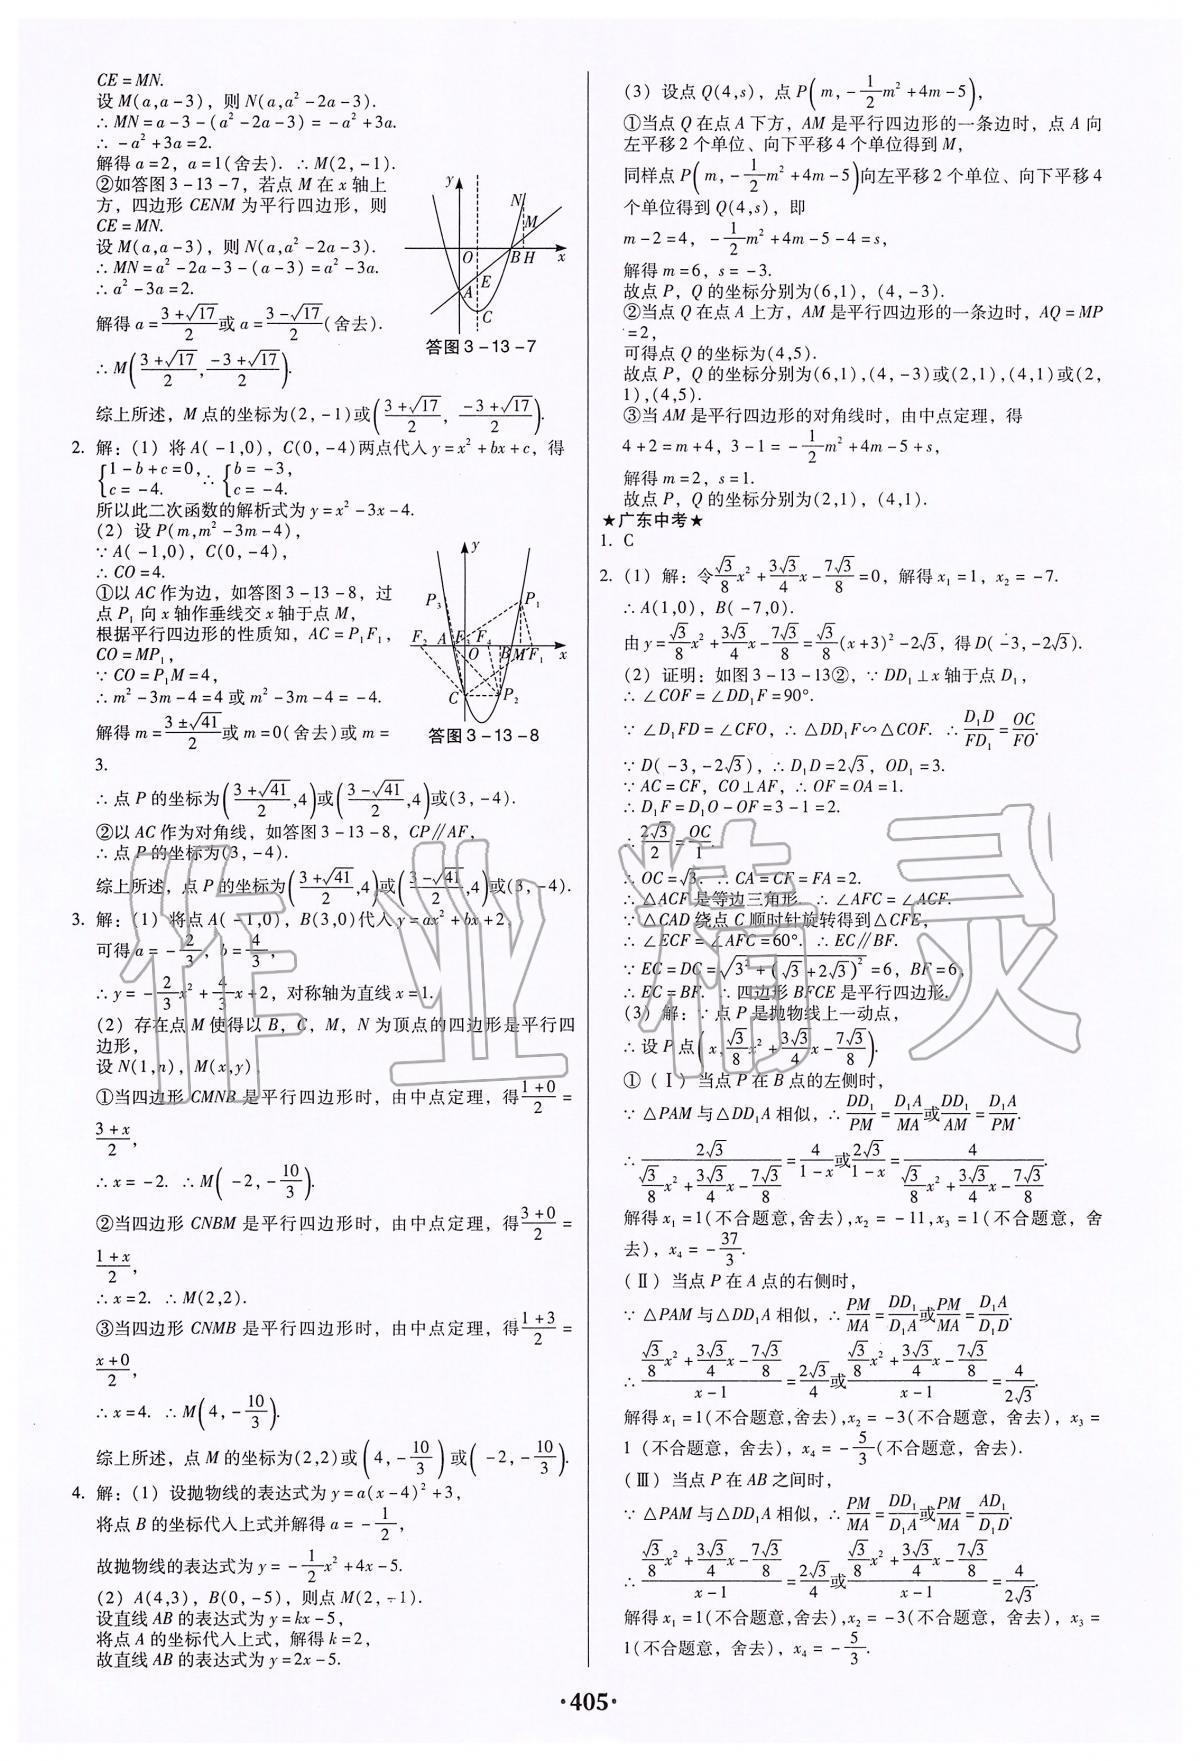 CE=MN.
设M(a,a-3)，则N(a,a²-2a-3).
∴MN=a-3-(a²-2a-3)=-a²+3a.
∴-a²+3a=2.
解得a=2，a=1(舍去). ∴M(2,-1).
②如答图3-13-7，若点M在x轴上
方，四边形CENM为平行四边形，则
CE=MN.
设M(a,a-3)，则N(a,a²-2a-3).
∴MN=a²-2a-3-(a-3)=a²-3a.
∴a²-3a=2.
解得a=(3+√17)/2或a=(3-√17)/2(舍去).
∴M((3+√17)/2,(-3+√17)/2).
y N M O B H x E A C
答图3-13-7
综上所述，M点的坐标为(2,-1)或((3+√17)/2, (-3+√17)/2).
2. 解：(1) 将A(-1,0)，C(0,-4)两点代入y=x²+bx+c，得
{1-b+c=0, c=-4. ∴{b=-3, c=-4.
所以此二次函数的解析式为y=x²-3x-4.
(2) 设P(m,m²-3m-4)，
∵A(-1,0)，C(0,-4)，
∴CO=4.
①以AC作为边，如答图3-13-8，过
点P₁向x轴作垂线交x轴于点M，
根据平行四边形的性质知，AC=P₁F₁，
CO=MP₁，
∵CO=P₁M=4，
∴m²-3m-4=4或m²-3m-4=-4.
解得m=(3±√41)/2或m=0(舍去)或m=
3.
y P₃ P₁ F₂ A F₃ F₄ O B M F₁ x C P₂
答图3-13-8
∴点P的坐标为((3+√41)/2,4)或((3-√41)/2,4)或(3,-4).
②以AC作为对角线，如答图3-13-8，CP∥AF，
∴点P的坐标为(3,-4).
综上所述，点P的坐标为((3+√41)/2,4)或((3-√41)/2,4)或(3,-4).
3. 解：(1) 将点A(-1,0)，B(3,0)代入y=ax²+bx+2，
可得a=-2/3，b=4/3，
∴y=-2/3x²+4/3x+2，对称轴为直线x=1.
(2) 存在点M使得以B，C，M，N为顶点的四边形是平行四
边形，
设N(1,n)，M(x,y).
①当四边形CMNB是平行四边形时，由中点定理，得(1+0)/2=
(3+x)/2，
∴x=-2. ∴M(-2,-10/3).
②当四边形CNBM是平行四边形时，由中点定理，得(3+0)/2=
(1+x)/2，
∴x=2. ∴M(2,2).
③当四边形CNMB是平行四边形时，由中点定理，得(1+3)/2=
(x+0)/2，
∴x=4. ∴M(4,-10/3).
综上所述，点M的坐标为(2,2)或(4,-10/3)或(-2,-10/3).
4. 解：(1) 设抛物线的表达式为y=a(x-4)²+3，
将点B的坐标代入上式并解得a=-1/2，
故抛物线的表达式为y=-1/2x²+4x-5.
(2) A(4,3)，B(0,-5)，则点M(2,-1).
设直线AB的表达式为y=kx-5，
将点A的坐标代入上式，解得k=2，
故直线AB的表达式为y=2x-5.
(3) 设点Q(4,s)，点P(m,-1/2m²+4m-5)，
①当点Q在点A下方，AM是平行四边形的一条边时，点A向
左平移2个单位、向下平移4个单位得到M，
同样点P(m,-1/2m²+4m-5)向左平移2个单位、向下平移4
个单位得到Q(4,s)，即
m-2=4，-1/2m²+4m-5-4=s，
解得m=6，s=-3.
故点P，Q的坐标分别为(6,1)，(4,-3).
②当点Q在点A上方，AM是平行四边形的一条边时，AQ=MP
=2，
可得点Q的坐标为(4,5).
故点P，Q的坐标分别为(6,1),(4,-3)或(2,1),(4,1)或(2,
1),(4,5).
③当AM是平行四边形的对角线时，由中点定理，得
4+2=m+4，3-1=-1/2m²+4m-5+s，
解得m=2，s=1.
故点P，Q的坐标分别为(2,1)，(4,1).
★广东中考★
1. C
2. (1) 解：令√3/8x²+3√3/4x-7√3/8=0，解得x₁=1，x₂=-7.
∴A(1,0)，B(-7,0).
由y=√3/8x²+3√3/4x-7√3/8=√3/8(x+3)²-2√3，得D(-3,-2√3).
(2) 证明：如图3-13-13②，∵DD₁⊥x轴于点D₁，
∴∠COF=∠DD₁F=90°.
∵∠D₁FD=∠CFO，∴△DD₁F∽△COF. ∴D₁D/FD₁=OC/FO.
∵D(-3,-2√3)，∴D₁D=2√3，OD₁=3.
∵AC=CF，CO⊥AF，∴OF=OA=1.
∴D₁F=D₁O-OF=3-1=2.
∴2√3/2=OC/1.
∴OC=√3. ∴CA=CF=FA=2.
∴△ACF是等边三角形. ∴∠AFC=∠ACF.
∵△CAD绕点C顺时针旋转得到△CFE，
∴∠ECF=∠AFC=60°. ∴EC∥BF.
∵EC=DC=√(3²+(√3+2√3)²)=6，BF=6，
∴EC=BF. ∴四边形BFCE是平行四边形.
(3) 解：∵点P是抛物线上一动点，
∴设P点(x,√3/8x²+3√3/4x-7√3/8).
①(Ⅰ) 当点P在B点的左侧时，
∵△PAM与△DD₁A相似，∴DD₁/PM=D₁A/MA或DD₁/AM=D₁A/PM.
∴2√3/(√3/8x²+3√3/4x-7√3/8)=4/(1-x)或2√3/(1-x)=4/(√3/8x²+3√3/4x-7√3/8).
解得x₁=1(不合题意,舍去),x₂=-11,x₃=1(不合题意，舍
去)，x₄=-37/3.
(Ⅱ) 当点P在A点的右侧时，
∵△PAM与△DD₁A相似，∴PM/MA=DD₁/D₁A或PM/MA=D₁A/D₁D.
∴(√3/8x²+3√3/4x-7√3/8)/(x-1)=2√3/4或(√3/8x²+3√3/4x-7√3/8)/(x-1)=4/(2√3).
解得x₁=1(不合题意,舍去),x₂=-3(不合题意，舍去)，x₃=
1 (不合题意，舍去)，x₄=-5/3(不合题意，舍去).
(Ⅲ) 当点P在AB之间时，
∵△PAM与△DD₁A相似，∴PM/MA=DD₁/D₁A或PM/MA=AD₁/D₁D.
∴(√3/8x²+3√3/4x-7√3/8)/(x-1)=2√3/4或(√3/8x²+3√3/4x-7√3/8)/(x-1)=4/(2√3).
解得x₁=1(不合题意,舍去),x₂=-3(不合题意，舍去)，x₃=
1(不合题意，舍去)，x₄=-5/3.
·405·
作业精灵